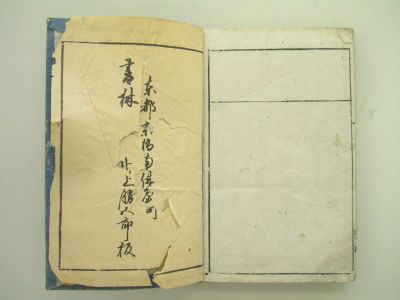 東都京橋南傳馬町
書林 井上勝五郎板